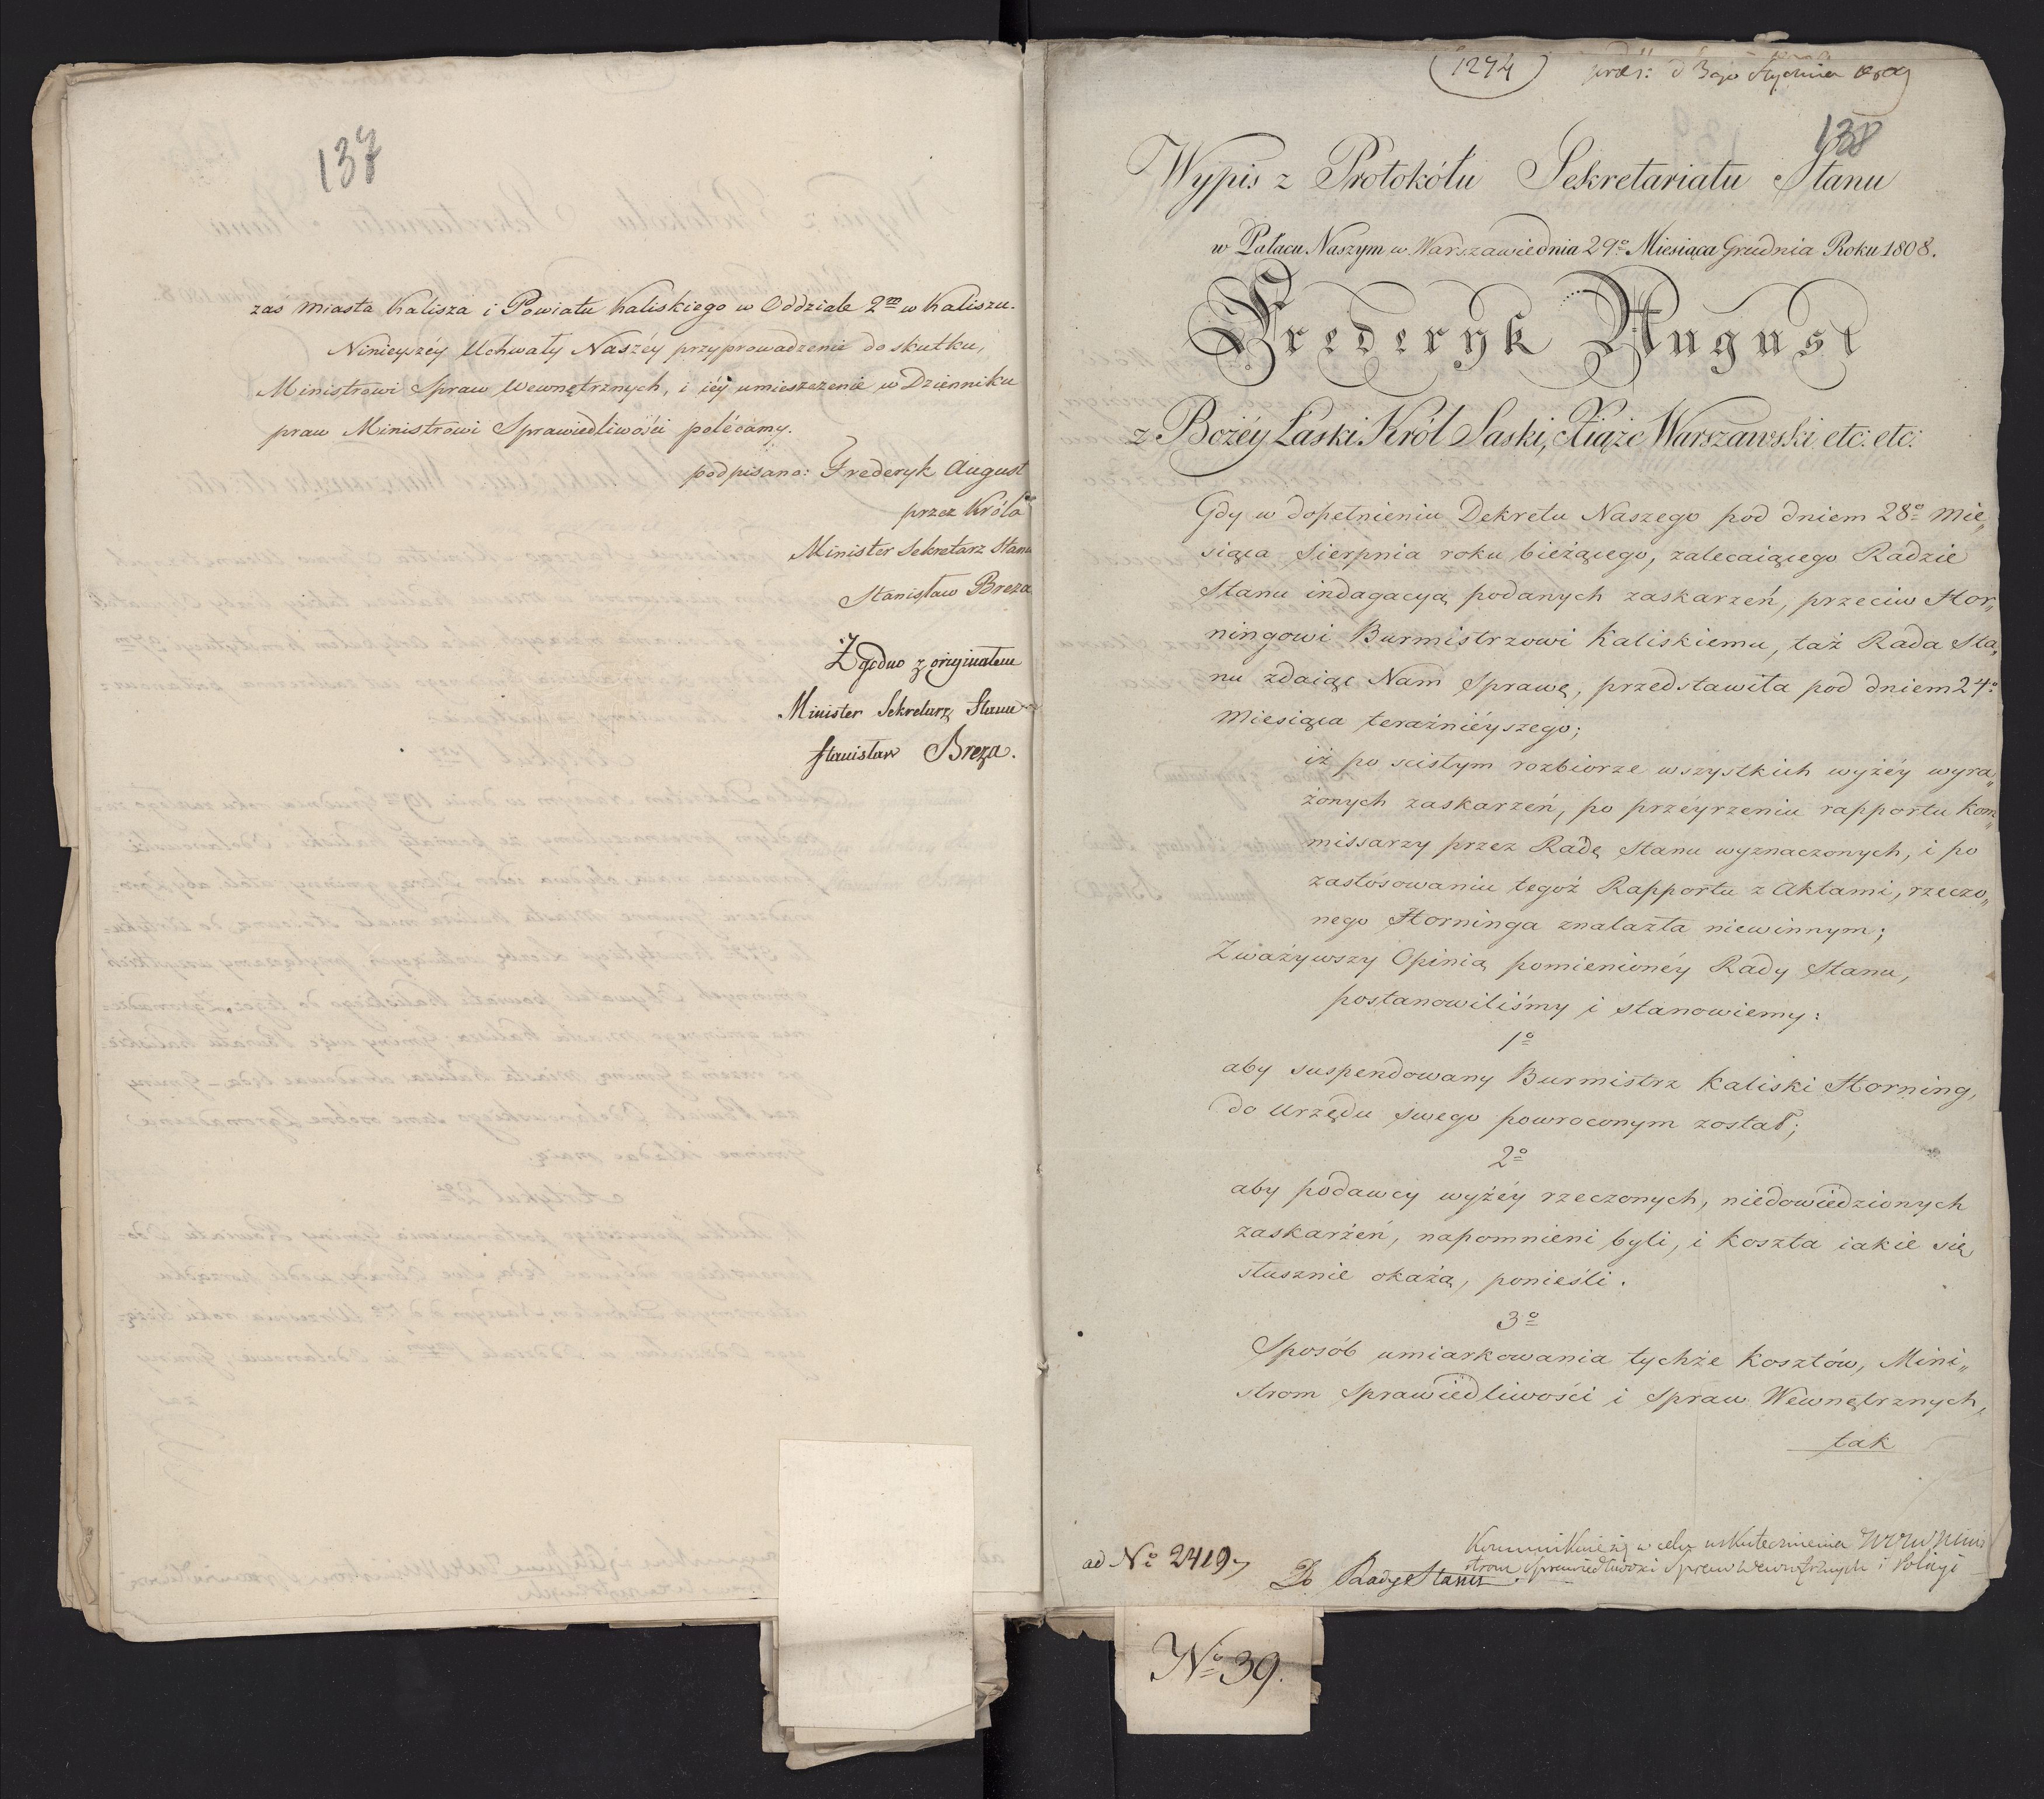 137
zaś Miasta Kalisza i Powiatu Kaliskiego w Oddziale 2m w Kaliszu.
Ninieyszéy Uchwały Naszéy przyprowadzenie do skutku,
Ministrowi Spraw Wewnętrznych, i iéy umieszczenie w Dzienniku
praw Ministrowi Sprawiedliwości polécamy.
podpisano: Frederyk August
przez Króla
Minister Sekretarz Stanu
Stanisław Breza
Zgodno z originałem
Minister Sekretarz Stanu
Stanisław Breza.
(1274) praes: d 3go Stycznia 1809
138
Wypis z Protokółu Sekretariatu Stanu
w Pałacu Naszym w Warszawie dnia 29o Miesiąca Grudnia Roku 1808.
Frederyk August
z Bożéy Łaski Król Saski, Xiąże Warszawski etc: etc:
Gdy w dopełnieniu Dekretu Naszego pod dniem 28o Mie„
siąca Sierpnia roku bieżącego, zalecaiącego Radzie
Stanu indagacyą podanych zaskarzeń, przeciw Hor„
ningowi Burmistrzowi Kaliskiemu, taż Rada Sta„
nu zdaiąc Nam Sprawę, przedstawiła pod dniem 24o
Miesiąca teraźniéyszego;
iż po scisłym rozbiorze wszystkich wyżéy wyra„
żonych zaskarzeń, po przéyrzeniu rapportu Kom„
missarzy przez Radę Stanu wyznaczonych, i po
zastósowaniu tegoż Rapportu z Aktami, rzeczo„
nego Horninga znalazła niewinnym;
Zważywszy Opinią pomienionéy Rady Stanu,
postanowiliśmy i stanowiemy:
1o
aby suspendowany Burmistrz Kaliski Horning,
do Urzędu swego powroconym został;
2o
aby podawcy wyżéy rzeczonych, niedowiedzionych
zaskarżeń, napomnieni byli, i koszta iakie się
słusznie okażą, ponieśli.
3o
Sposób umiarkowania tychże kosztów, Mini„
strom Sprawiedliwości i Spraw Wewnętrznych,
tak
ad No 2419
Do Rady Stanu
Kommunikuie się w celu uskutecznienia Mini
strom Sprawiedliwości Spraw Wewnętrznych i Policyi
No 39.